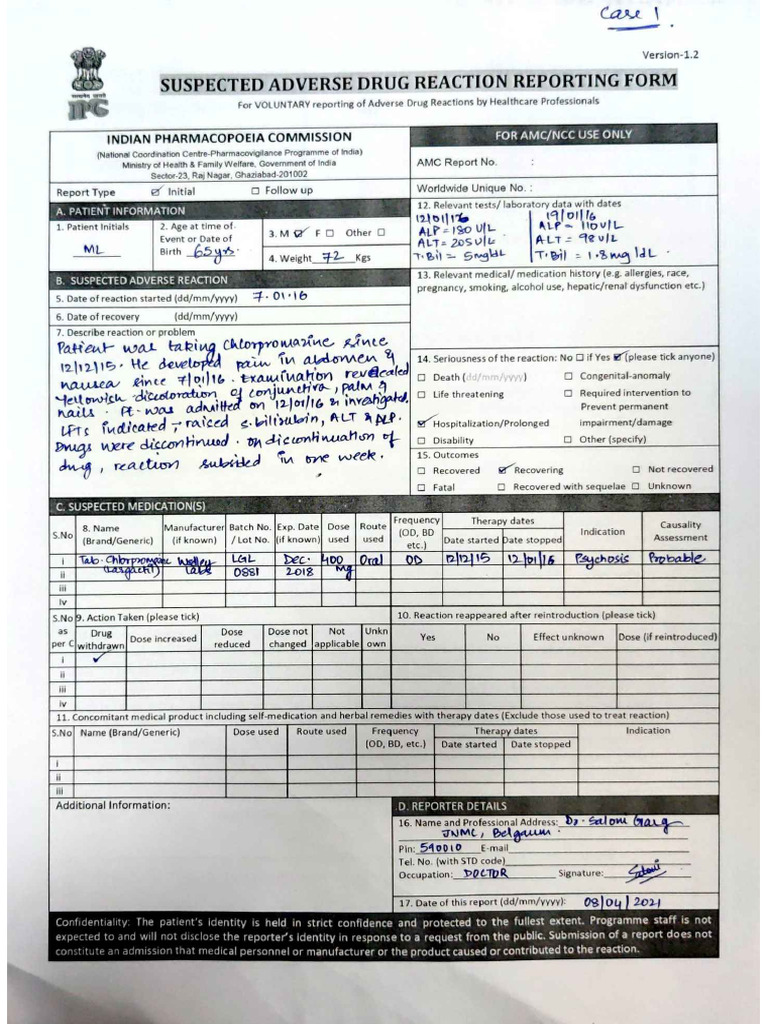 Case 1.
Version-1.2
IPC
SUSPECTED ADVERSE DRUG REACTION REPORTING FORM
For VOLUNTARY reporting of Adverse Drug Reactions by Healthcare Professionals
INDIAN PHARMACOPOEIA COMMISSION
(National Coordination Centre-Pharmacovigilance Programme of India)
Ministry of Health & Family Welfare, Government of India
Sector-23, Raj Nagar, Ghaziabad-201002
Report Type ☑ Initial ☐ Follow up
FOR AMC/NCC USE ONLY
AMC Report No. :
Worldwide Unique No. :
A. PATIENT INFORMATION
1. Patient Initials
ML
2. Age at time of
Event or Date of
Birth 65yrs.
3. M ☑ F ☐ Other ☐
4. Weight 72 Kgs
12. Relevant tests/ laboratory data with dates
12/01/16
ALP = 180 U/L
ALT = 205 U/L
T.Bil = 5mg/dL
19/01/16
ALP = 110 U/L
ALT = 98 U/L
T.Bil = 1.8 mg/dL
B. SUSPECTED ADVERSE REACTION
5. Date of reaction started (dd/mm/yyyy) 7.01.16
6. Date of recovery (dd/mm/yyyy)
7. Describe reaction or problem
Patient was taking Chlorpromazine since
12/12/15. He developed pain in abdomen &
nausea since 7/01/16. Examination revealed
Yellowish discoloration of conjunctiva, palm &
nails. Pt. was admitted on 12/01/16 & investigated.
LFTs indicated - raised s.bilirubin, ALT & ALP.
Drugs were discontinued. On discontinuation of
drug, reaction subsided in one week.
13. Relevant medical/ medication history (e.g. allergies, race,
pregnancy, smoking, alcohol use, hepatic/renal dysfunction etc.)
14. Seriousness of the reaction: No ☐ if Yes ☑ (please tick anyone)
☐ Death (dd/mm/yyyy) ☐ Congenital-anomaly
☐ Life threatening ☐ Required intervention to
Prevent permanent
☑ Hospitalization/Prolonged impairment/damage
☐ Disability ☐ Other (specify)
15. Outcomes
☐ Recovered ☑ Recovering ☐ Not recovered
☐ Fatal ☐ Recovered with sequelae ☐ Unknown
C. SUSPECTED MEDICATION(S)
S.No 8. Name (Brand/Generic) Manufacturer (if known) Batch No. / Lot No. Exp. Date (if known) Dose used Route used Frequency (OD, BD etc.) Therapy dates Date started Date stopped Indication Causality Assessment
i Tab. Chlorpromazine (Largactil) Labs LGL 0881 Dec. 2018 400 mg Oral OD 12/12/15 12/01/16 Psychosis Probable
ii
iii
iv
S.No as per C 9. Action Taken (please tick)
Drug withdrawn Dose increased Dose reduced Dose not changed Not applicable Unkn own
10. Reaction reappeared after reintroduction (please tick)
Yes No Effect unknown Dose (if reintroduced)
i ✓
ii
iii
iv
11. Concomitant medical product including self-medication and herbal remedies with therapy dates (Exclude those used to treat reaction)
S.No Name (Brand/Generic) Dose used Route used Frequency (OD, BD, etc.) Therapy dates Date started Date stopped Indication
i
ii
iii
Additional Information:
D. REPORTER DETAILS
16. Name and Professional Address: Dr. Saloni Garg
JNMC, Belgaum.
Pin: 590010 E-mail
Tel. No. (with STD code)
Occupation: DOCTOR Signature: Saloni
17. Date of this report (dd/mm/yyyy): 08/04/2021
Confidentiality: The patient's identity is held in strict confidence and protected to the fullest extent. Programme staff is not
expected to and will not disclose the reporter's identity in response to a request from the public. Submission of a report does not
constitute an admission that medical personnel or manufacturer or the product caused or contributed to the reaction.